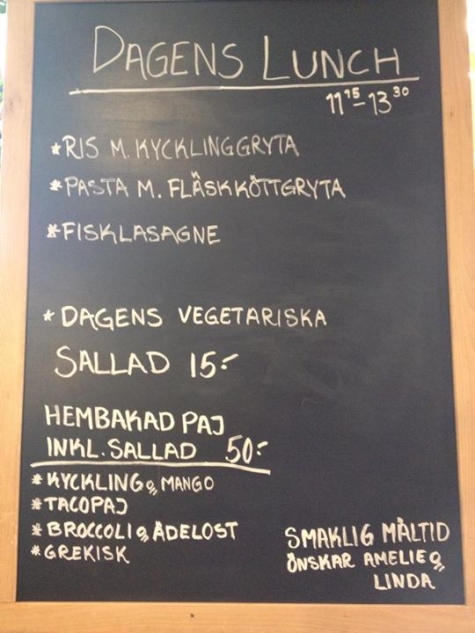 DAGENS LUNCH
11¹⁵-13³⁰
*RIS M. KYCKLINGGRYTA
*PASTA M. FLÄSKKÖTTGRYTA
*FISKLASAGNE
* DAGENS VEGETARISKA
SALLAD 15:-
HEMBAKAD PAJ
INKL. SALLAD 50:-
*KYCKLING & MANGO
*TACOPAJ
*BROCCOLI & ÄDELOST
*GREKISK
SMAKLIG MÅLTID
ÖNSKAR AMELIE &
LINDA